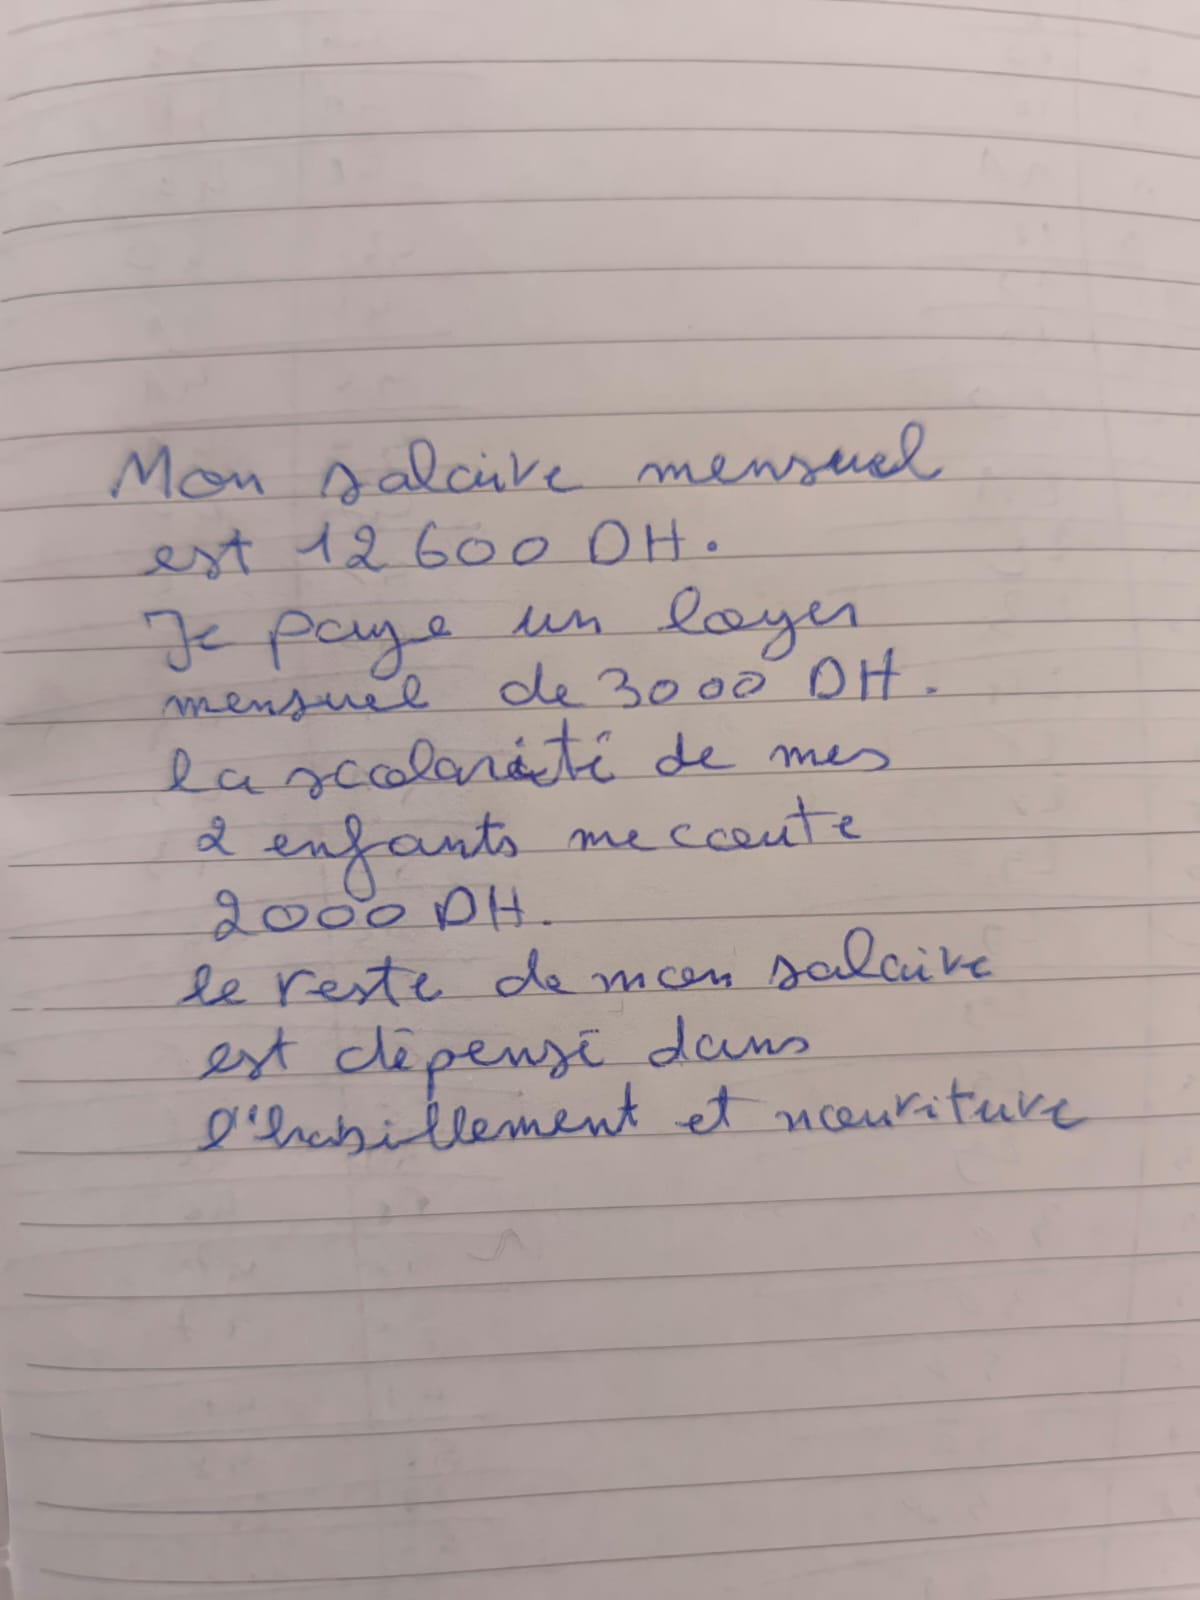 Mon salaire mensuel
est 12 600 DH.
Je paye un loyer
mensuel de 3000 DH.
la scolarité de mes
2 enfants me coute
2000 DH.
le reste de mon salaire
est dépensé dans
l'habillement et nouriture